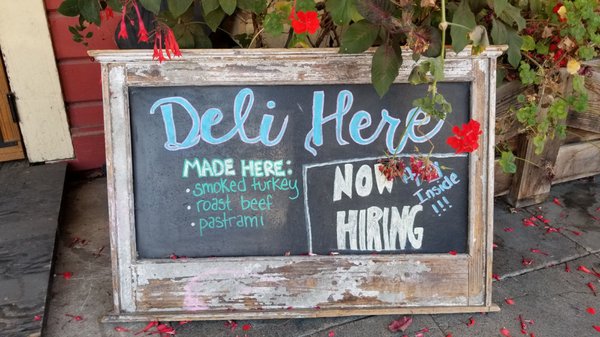 Deli Here
MADE HERE:
• smoked turkey
• roast beef
• pastrami
NOW
HIRING
Inside
!!!